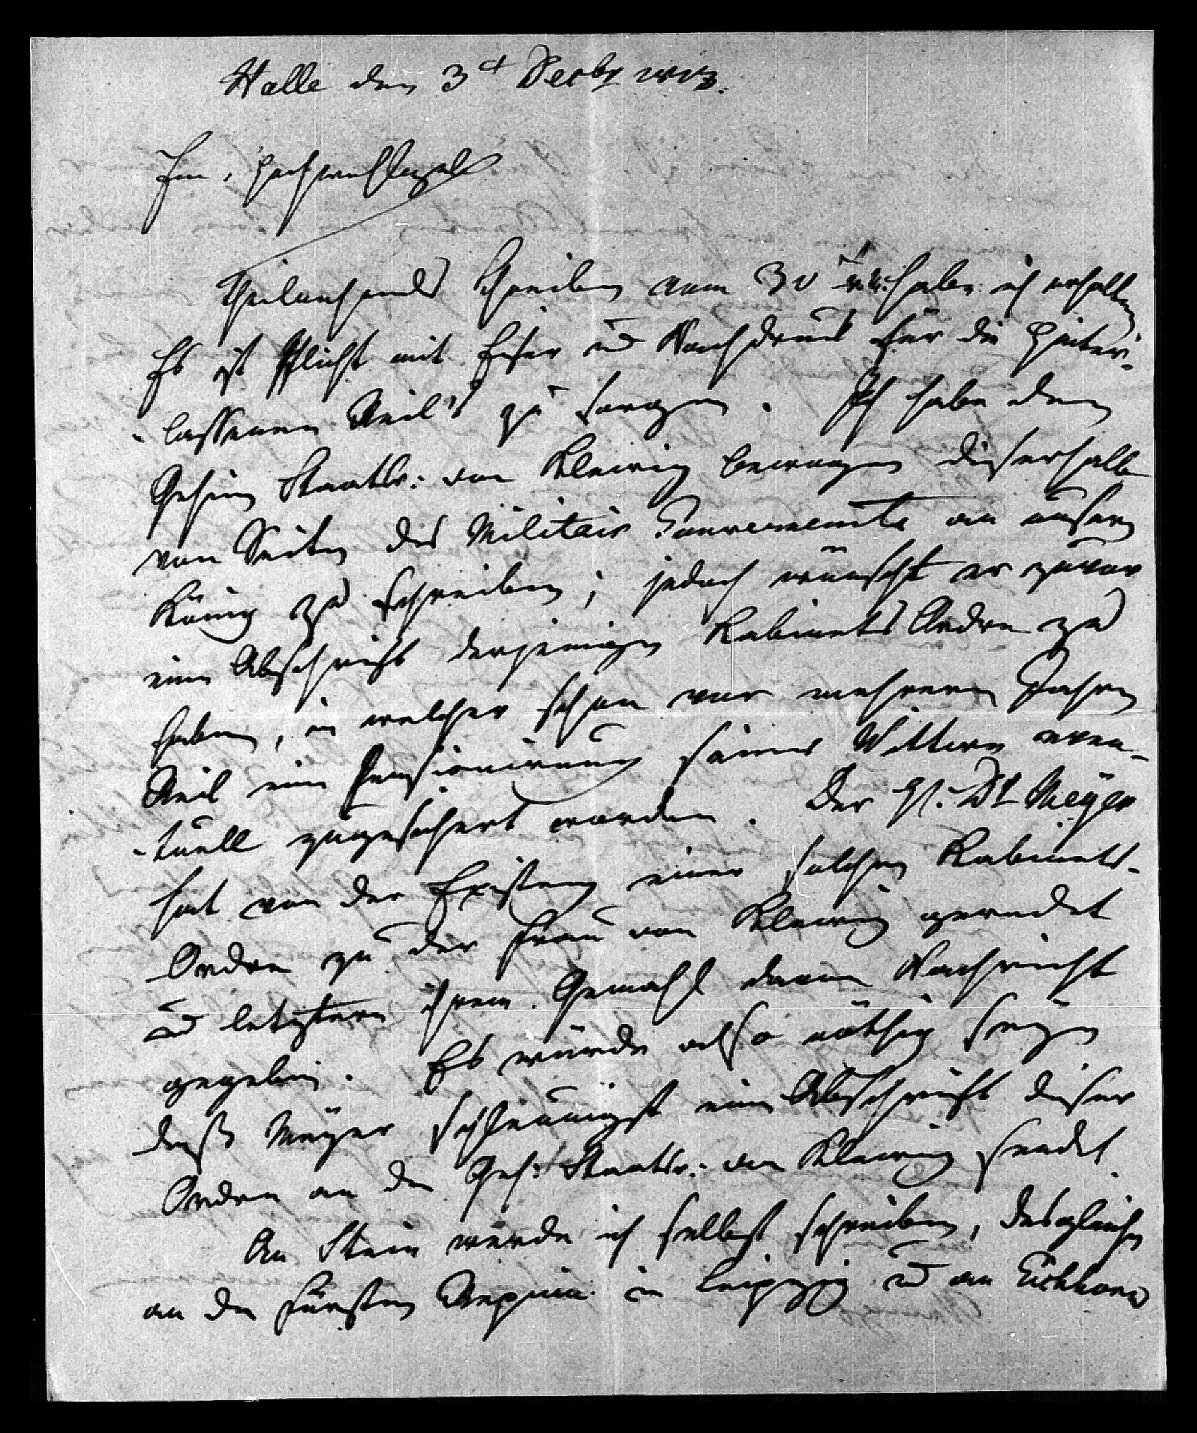 Halle den 3t Decbr 1813.
Ew. Hochwohlgeb
Theilnehmendes Schreiben vom 30 v. M. habe ich erhalten
Es ist Pflicht mit Eifer u Nachdruck für die Hinter-
-lassenen Reil's zu sorgen. Ich habe den
Geheim Staatsr. von Klewiz bewogen dieserhalb
von Seiten des Militair Gouvernements an unsern
König zu schreiben; jedoch wünscht er zuvor
eine Abschrift derjenigen Kabinets Ordre zu
haben, in welcher schon vor mehreren Jahren
Reil eine Pensionirung seiner Wittwe even-
-tuell zugesichert worden. Der H. Dr Meyer
hat von der Existenz einer solchen Kabinets-
Ordre zu der Frau von Klewiz geredet
u letztere ihrem Gemahl davon Nachricht
gegeben. Es würde also nöthig seyn
daß Meyer schleunigst eine Abschrift dieser
Ordre an den Geh. Staatsr. von Klewiz sendet.
An Stein werde ich selbst schreiben, desgleichen
an den Fürsten Repnin in Leipzig u an Eichhorn